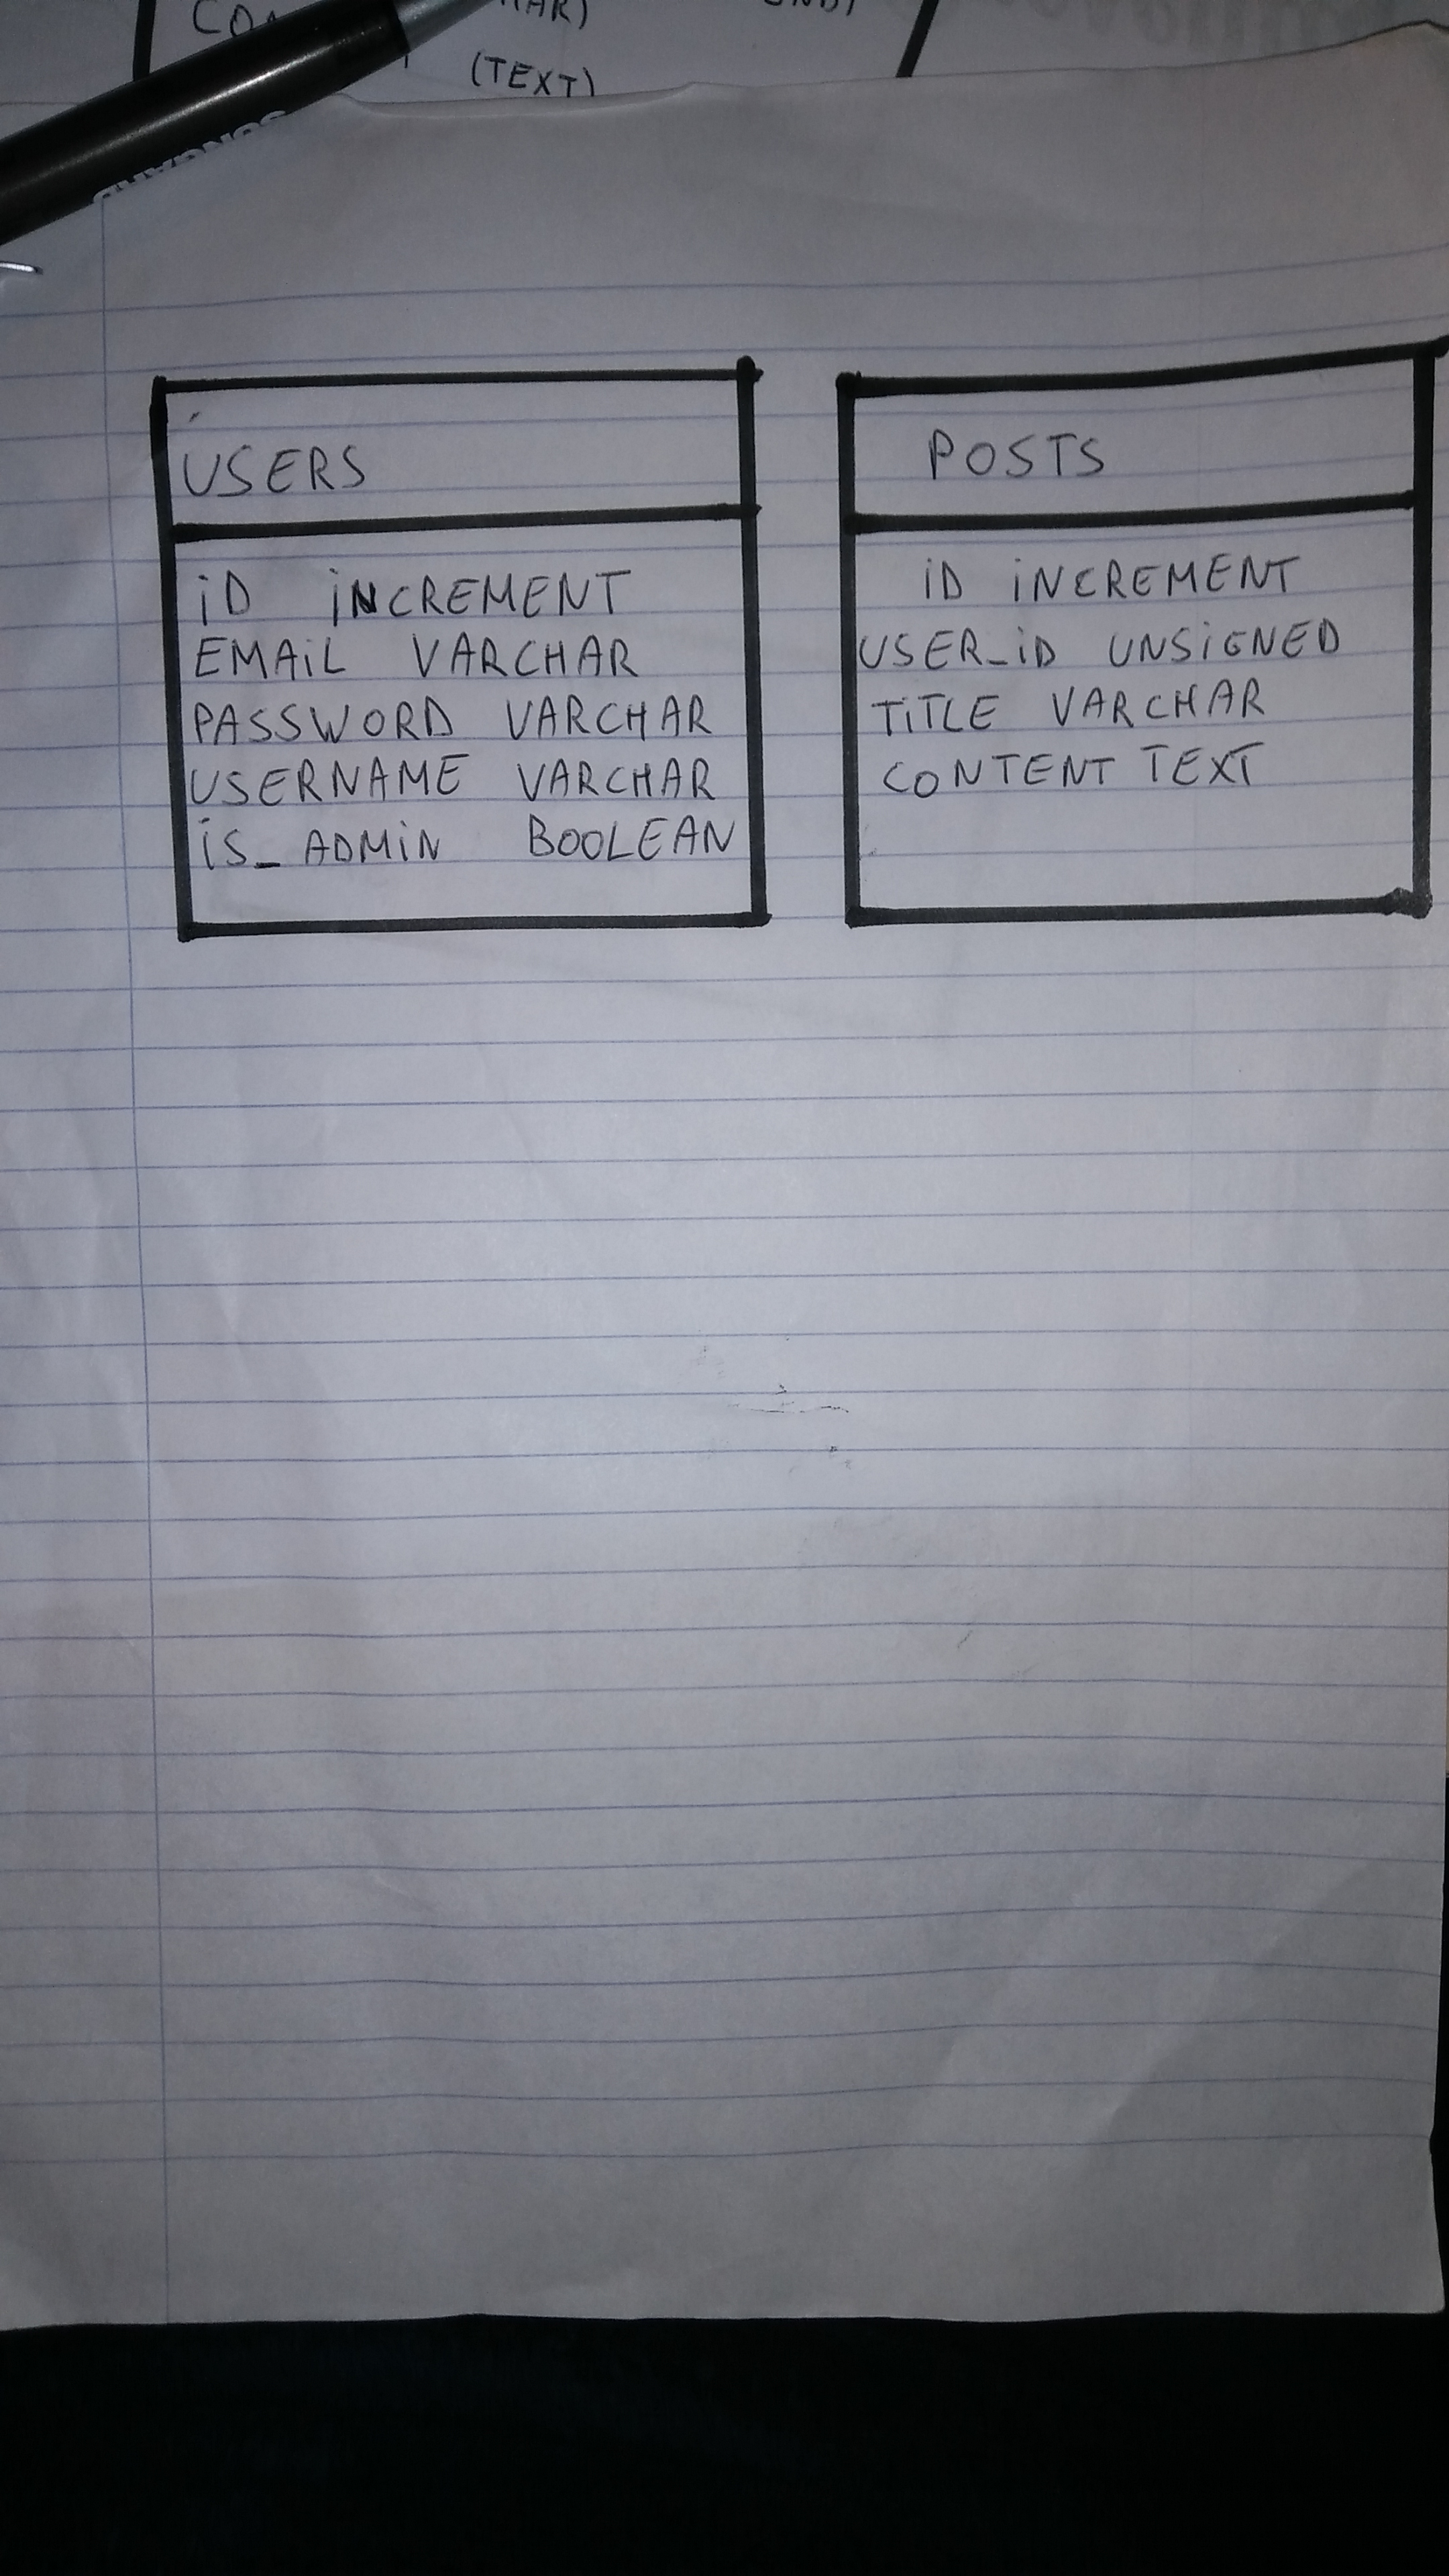 (TEXT)
USERS
iD iNCREMENT
EMAiL VARCHAR
PASSWORD VARCHAR
USERNAME VARCHAR
iS_ADMiN BOOLEAN
POSTS
iD iNCREMENT
USER_iD UNSiGNED
TiTLE VARCHAR
CONTENT TEXT